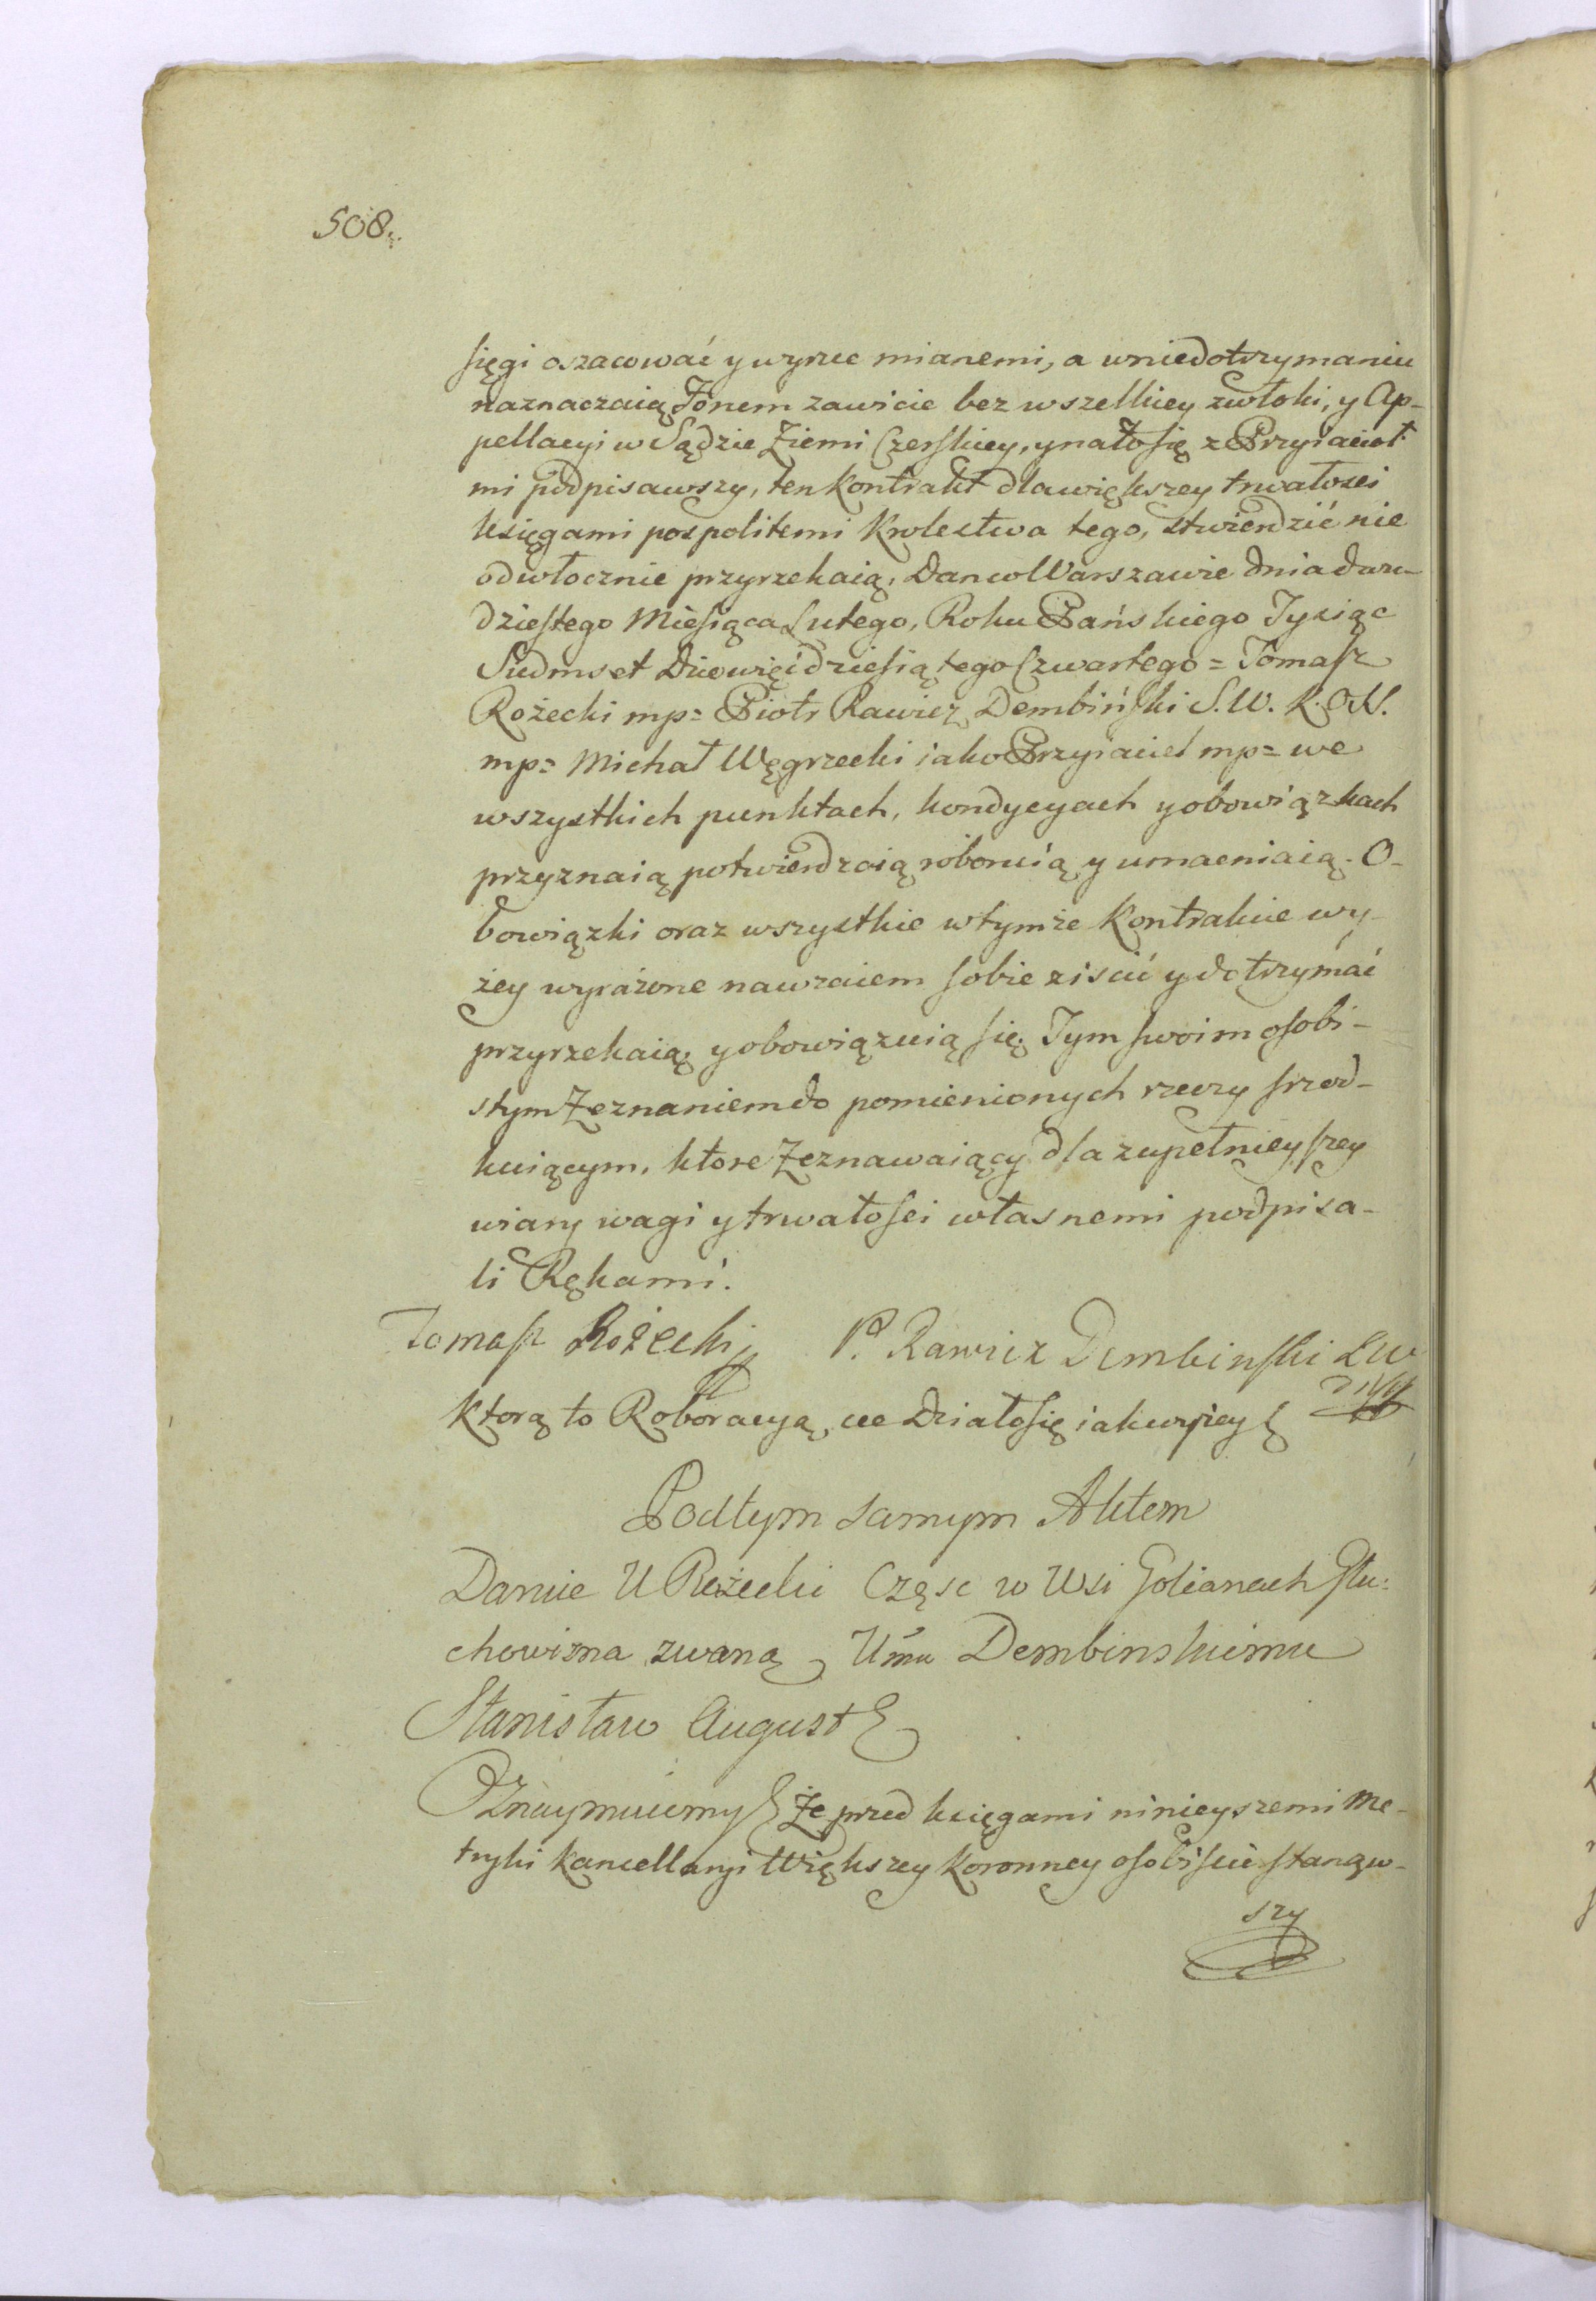 508.
sięgi oszacować y wyrzec mianemi, a w niedotrzymaniu
naznaczaią Fōrum zawicie bez wszelkiey zwłoki, y Ap-
pellacyi w Sądzie Ziemi Czerskiey, y na to się z Przyiacioł
mi podpisawszy, ten kontrakt dla większey trwałosci
księgami pospolitemi Krolestwa tego, stwierdzić nie
odwłocznie przyrzekaią, Dan w Warszawie dnia dwu-
dziestego Miesiąca Lutego, Roku Pańskiego Tysiąc
Siedmset Dziewięćdziesiątego Czwartego = Tomasz
Rożecki mp = Piotr Rawicz Dembiński S. W. K.
mp = Michał Węgrzecki iako Przyiaciel mp = we
wszystkich punktach, kondycyach y obowiązkach
przyznaią potwierdzaią roboruią y umacniaią. O-
bowiązki oraz wszystkie w tymże Kontrakcie wy-
żey wyrażone nawzaiem sobie ziscić y dotrzymać
przyrzekaią y obowiązuią się. Tym swoim osobi-
stym Zeznaniem do pomienionych rzeczy srzod-
kuiącym, ktore Zeznawaiący dla zupełnieyszey
wiary wagi y trwałosci własnemi podpisa-
li Rękami.
Tomasz Rożecki P. Rawicz Dembinski SW
Ktorą to Roboracyą, &c Działo się iak wyżey
Pod tym samym Aktem
Daruie U Rożecki Częsc w Wsi Golianach Głu-
chowizna zwaną Umu Dembinskiemu
Stanisław August
Oznaymuiemy Że przed księgami ninieyszemi Me-
tryki Kancellaryi Większey Koronney osobiscie stanąw-
szy